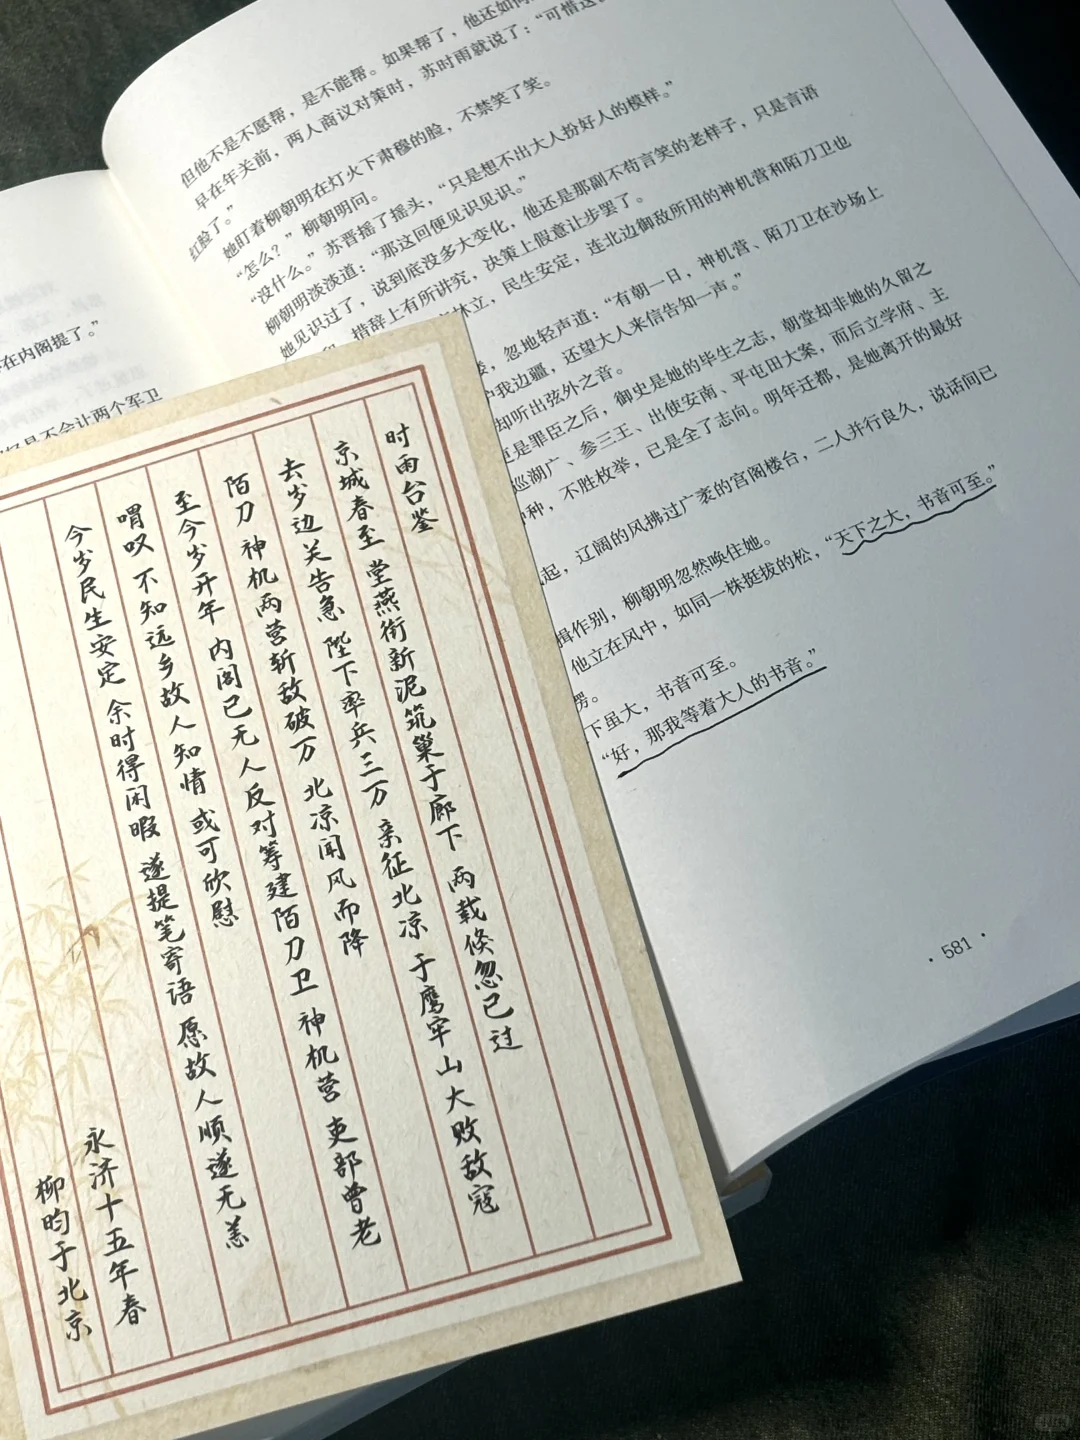 但他不是不愿帮，是不能帮。如果帮了，他还如何
早在年关前，两人商议对策时，苏时雨就说了：“可惜这
红脸了。”
她盯着柳朝明在灯火下肃穆的脸，不禁笑了笑。
“怎么？”柳朝明问。
“没什么。”苏晋摇了摇头，“只是想不出大人扮好人的模样。”
柳朝明淡淡道：“那这回便见识见识。”
她见识过了，说到底没多大变化，他还是那副不苟言笑的老样子，只是言语
措辞上有所讲究，决策上假意让步罢了。
林立，民生安定，连北边御敌所用的神机营和陌刀卫也
忽地轻声道：“有朝一日，神机营、陌刀卫在沙场上
我边疆，还望大人来信告知一声。”
却听出弦外之音。
是罪臣之后，御史是她的毕生之志，朝堂却非她的久留之
巡湖广、参三王、出使安南、平屯田大案，而后立学府、主
种，不胜枚举，已是全了志向。明年迁都，是她离开的最好
起，辽阔的风拂过广袤的宫阁楼台，二人并行良久，说话间已
揖作别，柳朝明忽然唤住她。
他立在风中，如同一株挺拔的松，“天下之大，书音可至。”
愣。
下虽大，书音可至。
“好，那我等着大人的书音。”
·581·
在内阁提了。”
是不会计两个军卫
时雨台鉴
京城春至 堂燕衔新泥筑巢于廊下 两载倏忽已过
去岁边关告急 陛下率兵三万 亲征北凉 于鹰牢山大败敌寇
陌刀 神机两营斩敌破万 北凉闻风而降
至今岁开年 内阁已无人反对筹建陌刀卫 神机营 吏部曾老
喟叹 不知远乡故人知情 或可欣慰
今岁民生安定 余时得闲暇 遂提笔寄语 愿故人顺遂无恙
永济十五年春
柳昀于北京